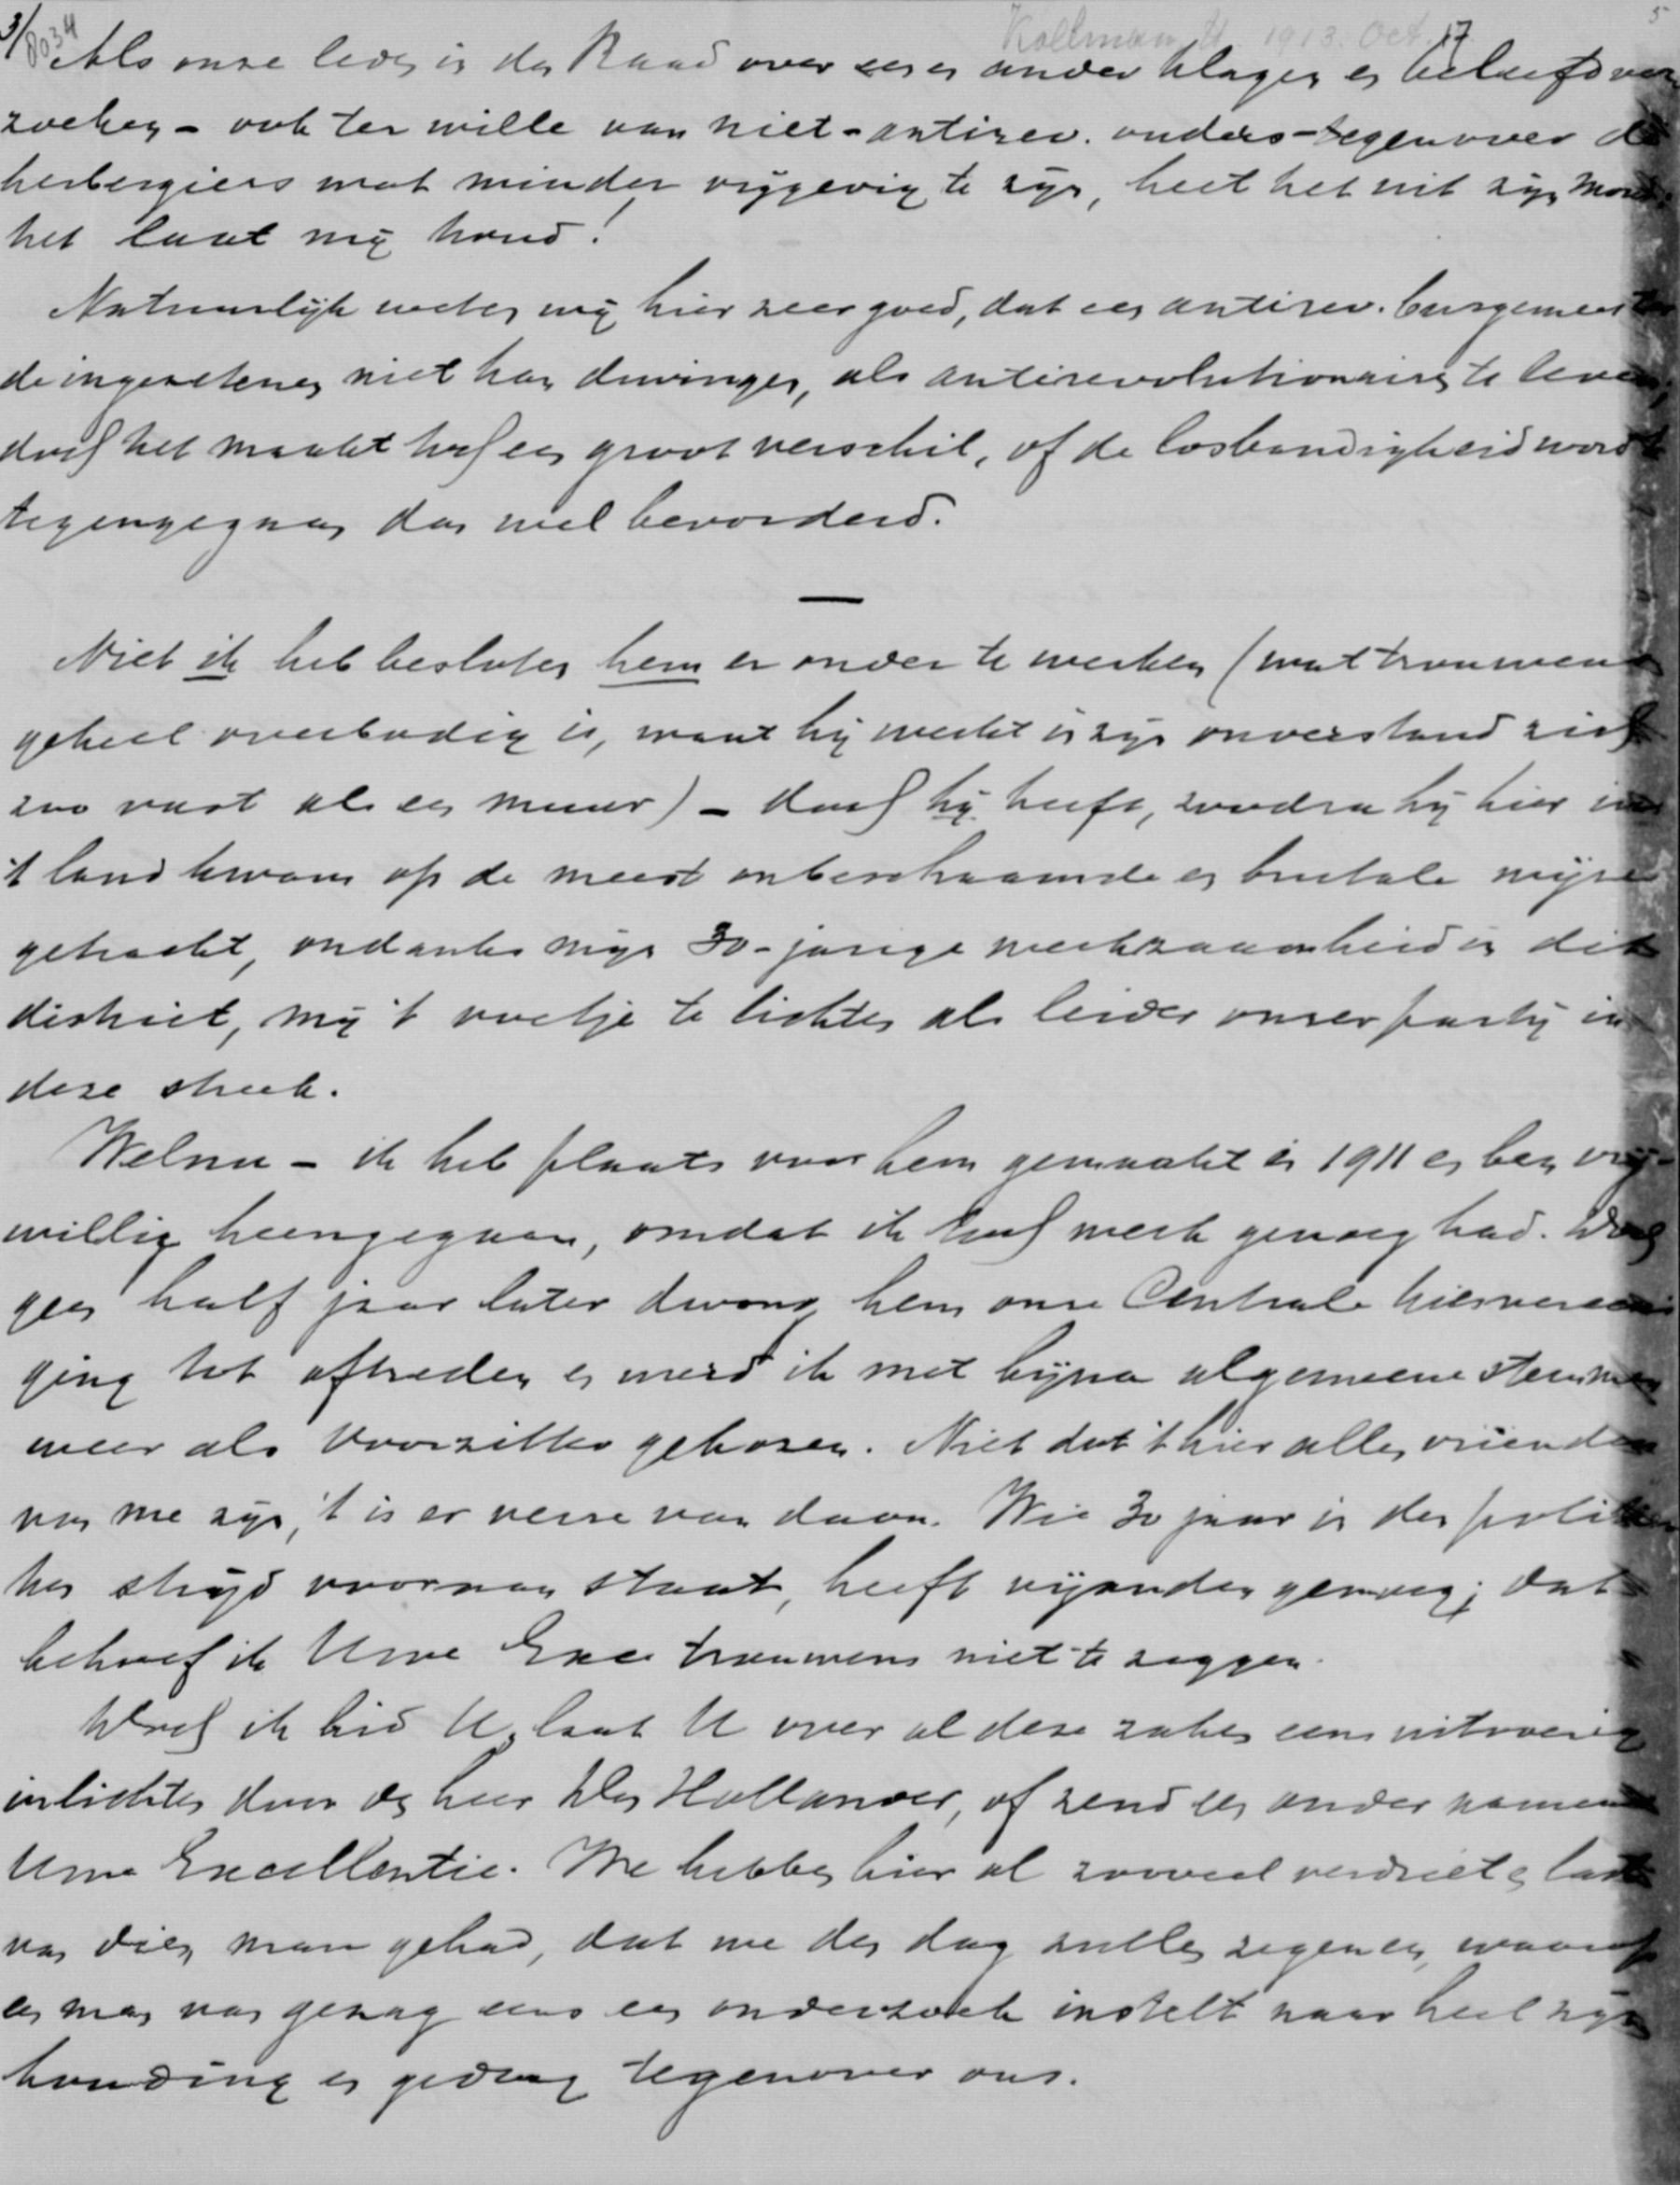 3/
8034
Kollman, H. 1913. Oct. 17
5
Als onze leden in den Raad over een en ander klagen en beleefd ver-
zoeken - ook ter wille van niet-antirev. ouders - tegenover de
herbergiers wat minder vrijgevig te zijn, heet het uit zijn mond:
het laat mij koud!
Natuurlijk weten wij hier zeer goed, dat een antirev. burgemeester
de ingezetenen niet kan dwingen, als antirevolutionairen te leven,
doch het maakt toch een groot verschil, of de losbandigheid wordt
tegengegaan dan wel bevorderd.
—
Niet ik heb besloten hem er onder te werken (wat trouwens
geheel overbodig is, want hij werkt in zijn onverstand zich
zoo vast als een muur) - doch hij heeft, zoodra hij hier in
't land kwam op de meest onbeschaamde en brutale wijze
getracht, ondanks mijn 30-jarige werkzaamheid in dit
district, mij 't voetje te lichten als leider onzer partij in
deze streek.
Welnu - ik heb plaats voor hem gemaakt in 1911 en ben vrij-
willig heengegaan, omdat ik toch werk genoeg had. Doch
geen half jaar later dwong hem onze Centrale Kiesvereeni-
ging tot aftreden en werd ik met bijna algemeene stemmen
weer als Voorzitter gekozen. Niet dat 't hier allen vrienden
van me zijn, 't is er verre van daan. Wie 30 jaar in den politie-
ken strijd vooraan staat, heeft vijanden genoeg; dat
behoef ik Uwe Exce trouwens niet te zeggen.
Doch ik bid U, laat U over al deze zaken eens uitvoerig
inlichten door den heer Den Hollander, of zend een ander namens
Uwe Excellentie. We hebben hier al zooveel verdriet en last
van dien man gehad, dat we den dag zullen zegenen, waarop
een man van gezag eens een onderzoek instelt naar heel zijn
houding en gedrag tegenover ons.